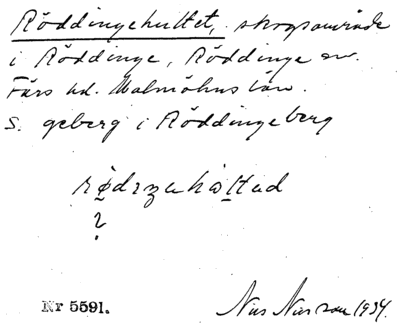 Röddingehultet, skogsområde
i Röddinge, Röddinge sn.
Färs hd. Malmöhus län.
S. geberg i Röddingeberg
?
Nr 5591.
Nils Nilsson 1934.